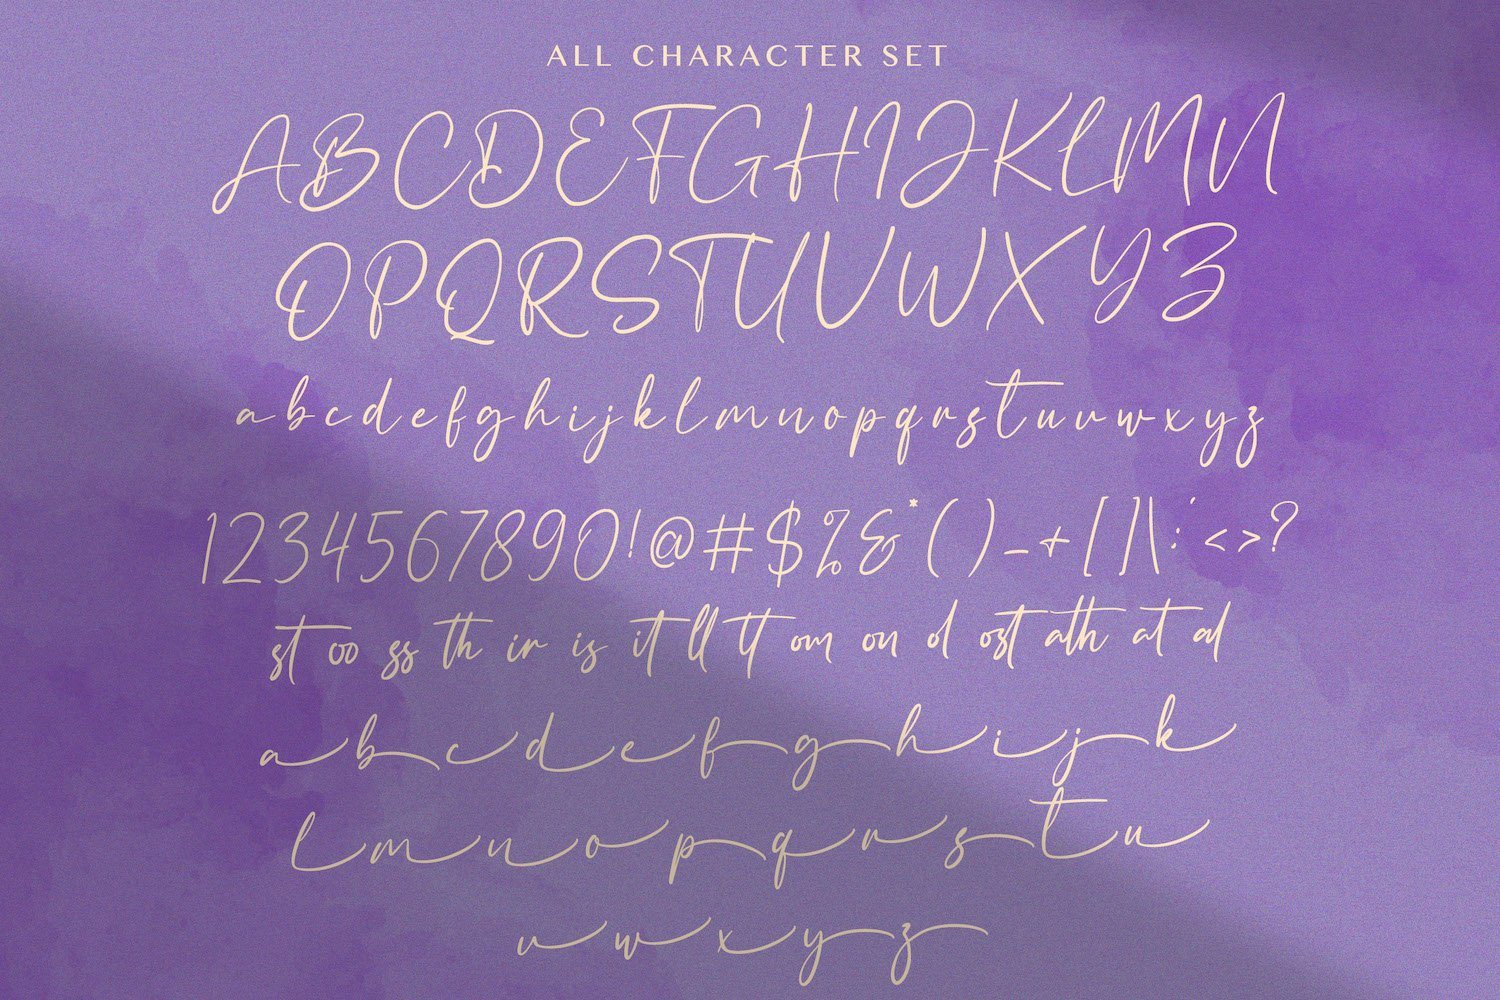 ALL CHARACTER SET
ABCDEFGHIJKLMN
OPQRSTUVWXYZ
abcdefghijklmnopqrstuvwxyz
1234567890!@#$%&*()-+[]\:'<>?
st oo ss th ir is it ll tt om on ol ost ath at al
abcdefghijk
lmnopqrstu
vwxyz